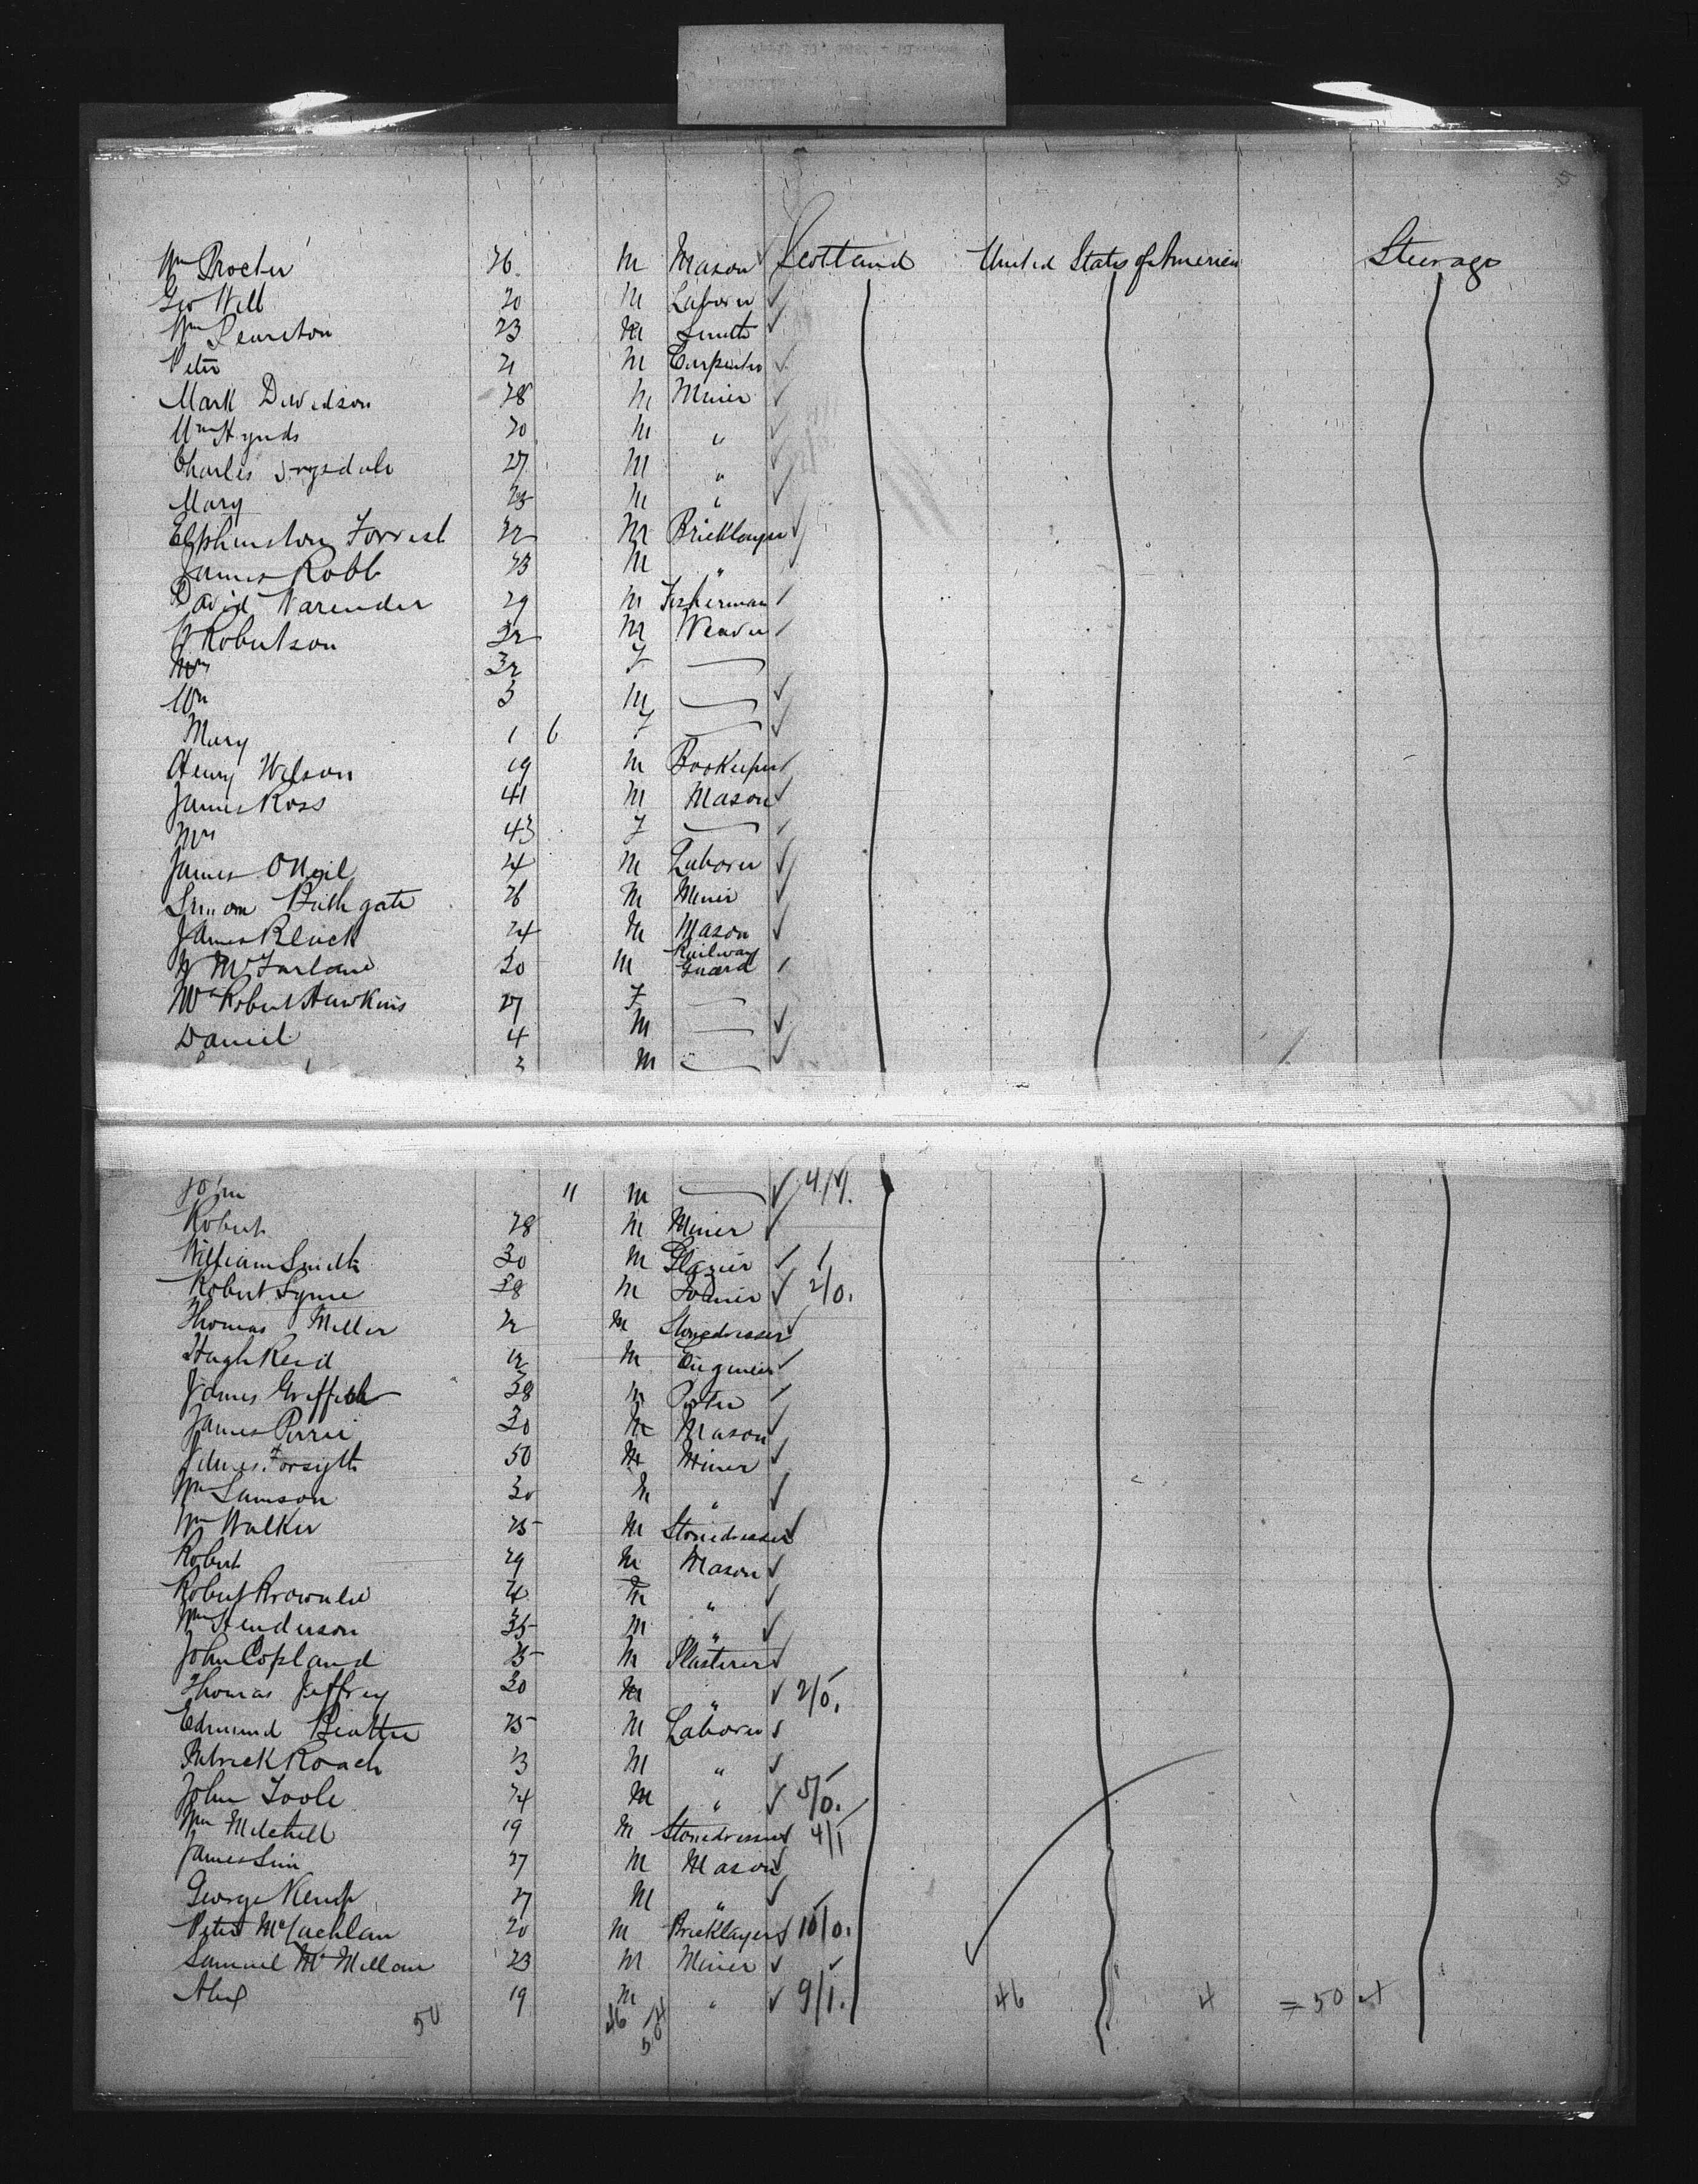 Wm Procter 26 M Mason Scotland United States of America Steerage
Geo Will 20 M Laborer
Wm 23 M Smith
Peter 21 M Carpenter
Mark Davidson 28 M Miner
Wm Hynds 20 M "
Charles 27 M "
Mary 25 M "
Elphinston Forrest 22 M Bricklayer
James Robb 23 M "
David Warender 29 M Fisherman
Robertson 32 M Weaver
Mrs 32 F
Wm 3 M
Mary 1 6 F
Henry Wilson 19 M Bookkeeper
James Ross 41 M Mason
Mrs 43 F
James ONeil 24 M Laborer
Simon Bathgate 26 M Miner
James Black 24 M Mason
McFarlane 30 M Railway Guard
Mrs Robert Hawkins 27 F
Daniel 4 M
3 M
John 11 M
Robert 28 M Miner
William Smith 30 M Glazier
Robert Syme 38 M Joiner 2/0.
Thomas Miller 22 M Stonedresser
Hugh Reid M Engineer
James Griffith 38 M Porter
James Perrie 30 M Mason
James Forsyth 50 M Miner
Wm Samson 30 M "
Wm Walker 25 M Stonedresser
Robert 29 M Mason
Robert Brownlie M "
Wm Henderson 35 M "
John Copland 25 M Plasterer
Thomas Jeffrey 30 M " 2/0.
Edmund Beattie 25 M Laborer
Patrick Roach 23 M "
John Toole 24 M " 5/0.
Wm Mitchell 19 M Stonedresser 4/1
James Sim 27 M Mason
George Kemp 27 M "
Peter McLachlan 20 M Bricklayer 10/0.
Samuel McMillan 23 M Miner
Alex 19 M " 9/1. 46 4 = 50
50 46